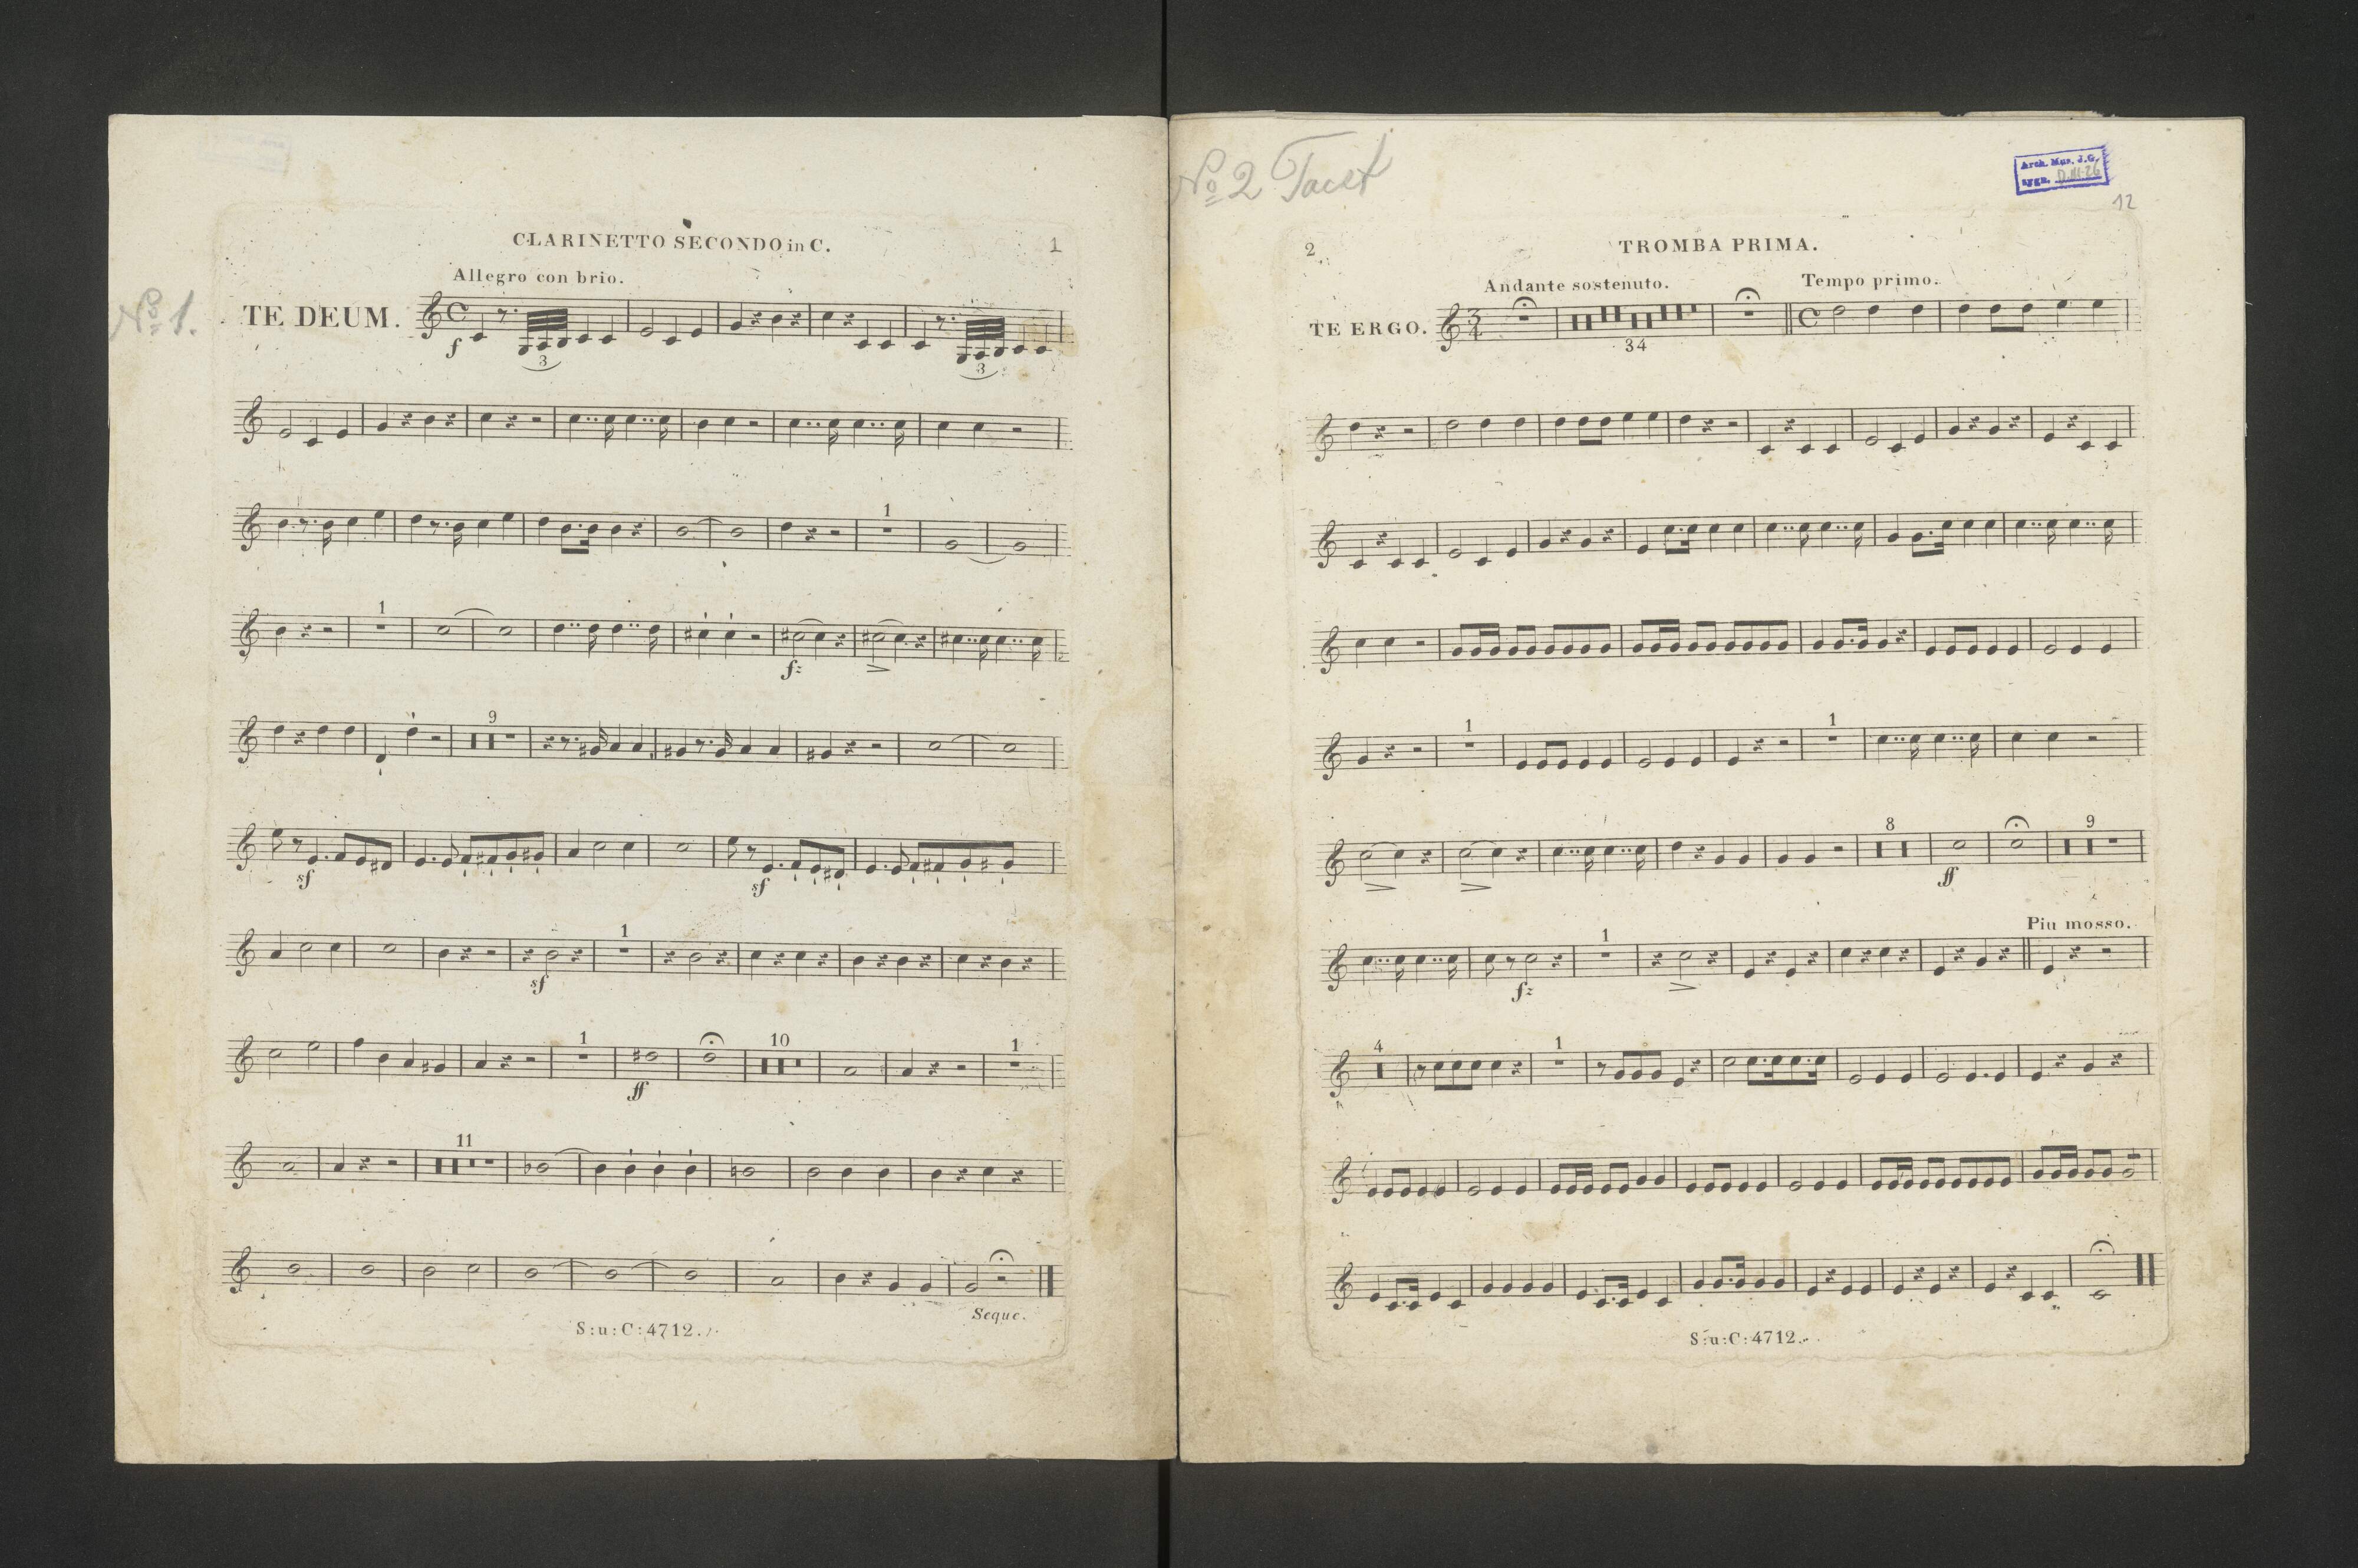 CLARINETTO SECONDO in C.
1
Allegro con brio.
No 1.
TE DEUM.
f
3
3
1
1
fz
9
sf
sf
1
sf
1
10
1
ff
11
Seque.
S:u:C:4712.
No 2 Tacet
Arch. Mus. J.G.
sygn.
12
2
TROMBA PRIMA.
Andante sostenuto.
Tempo primo.
TE ERGO.
3
4
34
1
1
8
9
ff
Piu mosso.
1
fz
4
1
S:u:C:4712.